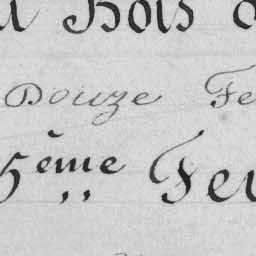 Bois
Douze Fe
5ème Feu